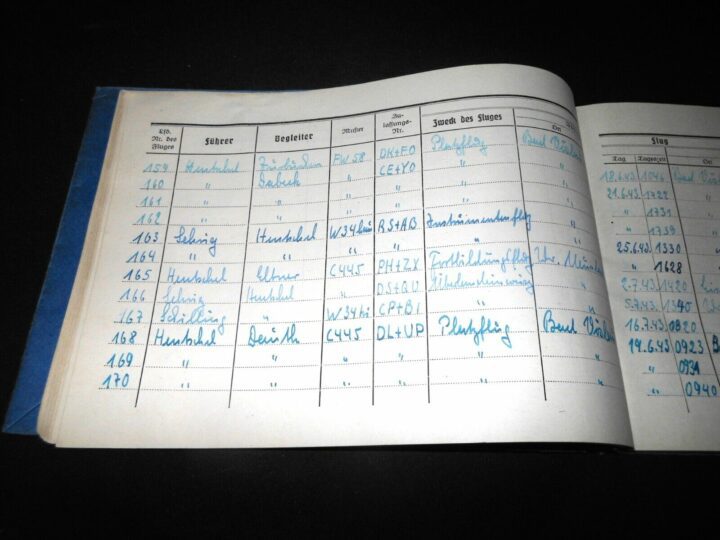 Lfd. Nr. des Fluges Führer Begleiter Muster Zulassungs-Nr. Zweck des Fluges Ort Flug Tag Tageszeit Ort
159 Hentschel FW 58 DK+FO Platzflug Bad 18.6.43 1046 Bad
160 " " CE+YO " " 21.6.43 1722 "
161 " " " " " " " 1731 "
162 " " " " " " " 1739 "
163 Sehrig Hentschel W34 RS+AB Instrumentenflug " 25.6.43 1330 "
164 " " " " " " " 1628
165 Hentschel Eltner C445 PH+ZX Fortbildungsflug 2.7.43 1420
166 Sehrig Hentschel " DS+QU " 5.7.43 1340
167 Schilling " W34 hi CP+BI " " 16.7.43 0820
168 Hentschel C445 DL+UP Platzflug Bad 19.6.43 0923
169 " " " " " " " 0931
170 " " " " " " " 0940